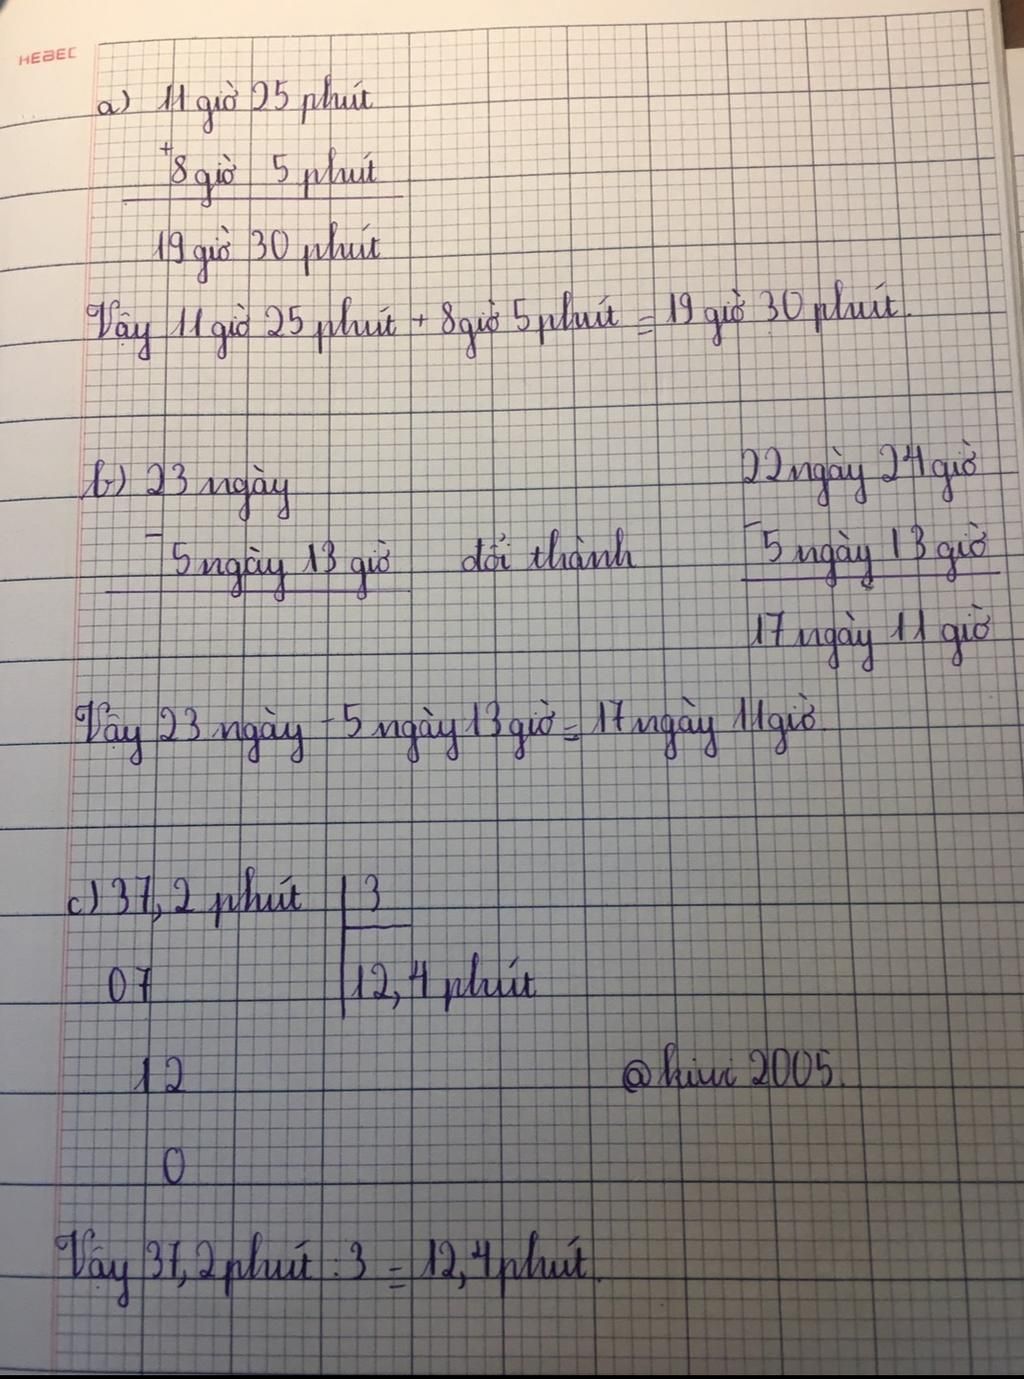 HEBEC
a) 11 giờ 25 phút
+
8 giờ 5 phút
19 giờ 30 phút
Vậy 11 giờ 25 phút + 8 giờ 5 phút = 19 giờ 30 phút.
b) 23 ngày
22 ngày 24 giờ
- 5 ngày 13 giờ đổi thành - 5 ngày 13 giờ
17 ngày 11 giờ
Vậy 23 ngày - 5 ngày 13 giờ = 17 ngày 11 giờ.
c) 37,2 phút 3
07 12,4 phút
12 @kiwi 2005.
0
Vậy 37,2 phút : 3 = 12,4 phút.